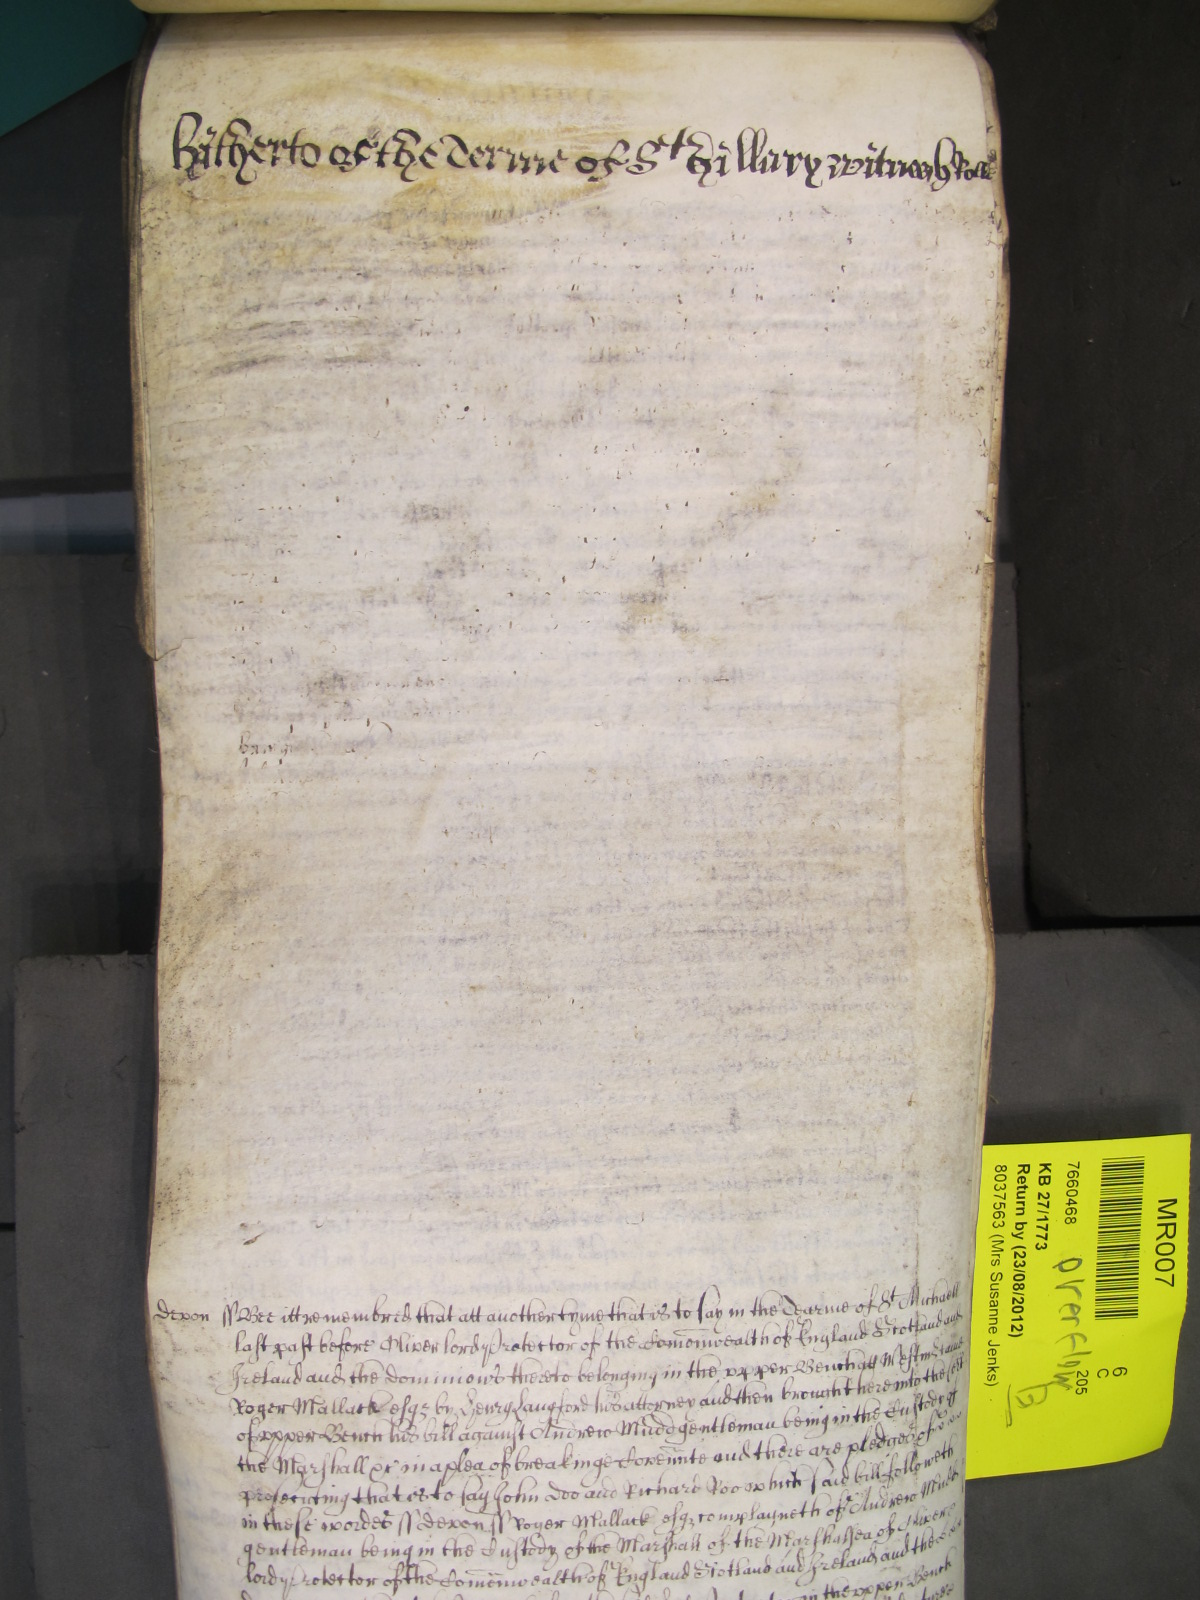 Hitherto of the Terme of St Hillary witnes Roll
devon ss Bee itt remembred that att another tyme that is to say in the Tearme of St Michaell
last past before Oliver lord Protector of the Comonwealth of England Scotland and
Ireland and the dominions thereto belonging in the upper Bench att Westm came
Roger Mallack esqr by Henry Langford his attorney and then brought here into the
of upper Bench his bill against Andrew Mudd gentleman being in the Custody of
the Marshall &c in a plea of breakinge Covennte and there are pledges of
prosecuting that is to say John Doo and Richard Roo which said bill followeth
in these wordes ss devon ss Roger Mallack esqr complayneth of Andrew Mudd
gentleman being in the Custody of the Marshall of the Marshalsea of Oliver
lord Protector of the Comonwealth of England Scotland and Ireland and the
in the upper Bench
MR007
6
C
205
7660468
KB 27/1773
Return by (23/08/2012)
8037563 (Mrs Susanne Jenks)
overflow